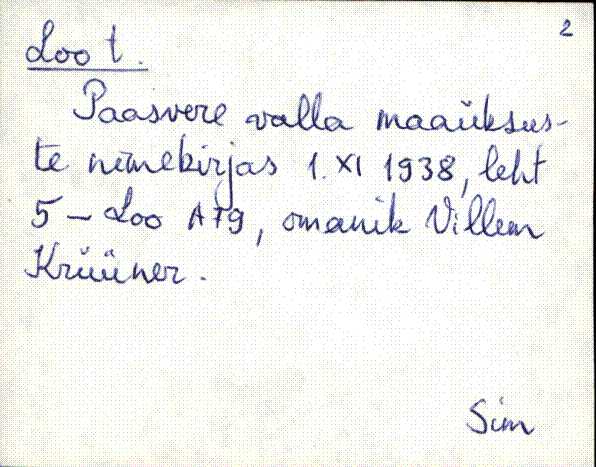 2
Loo t.
Paasvere valla maaüksus-
te nimekirjas 1. XI 1938, leht
5 – Loo A79, omanik Villem
Krüüner.
Sim